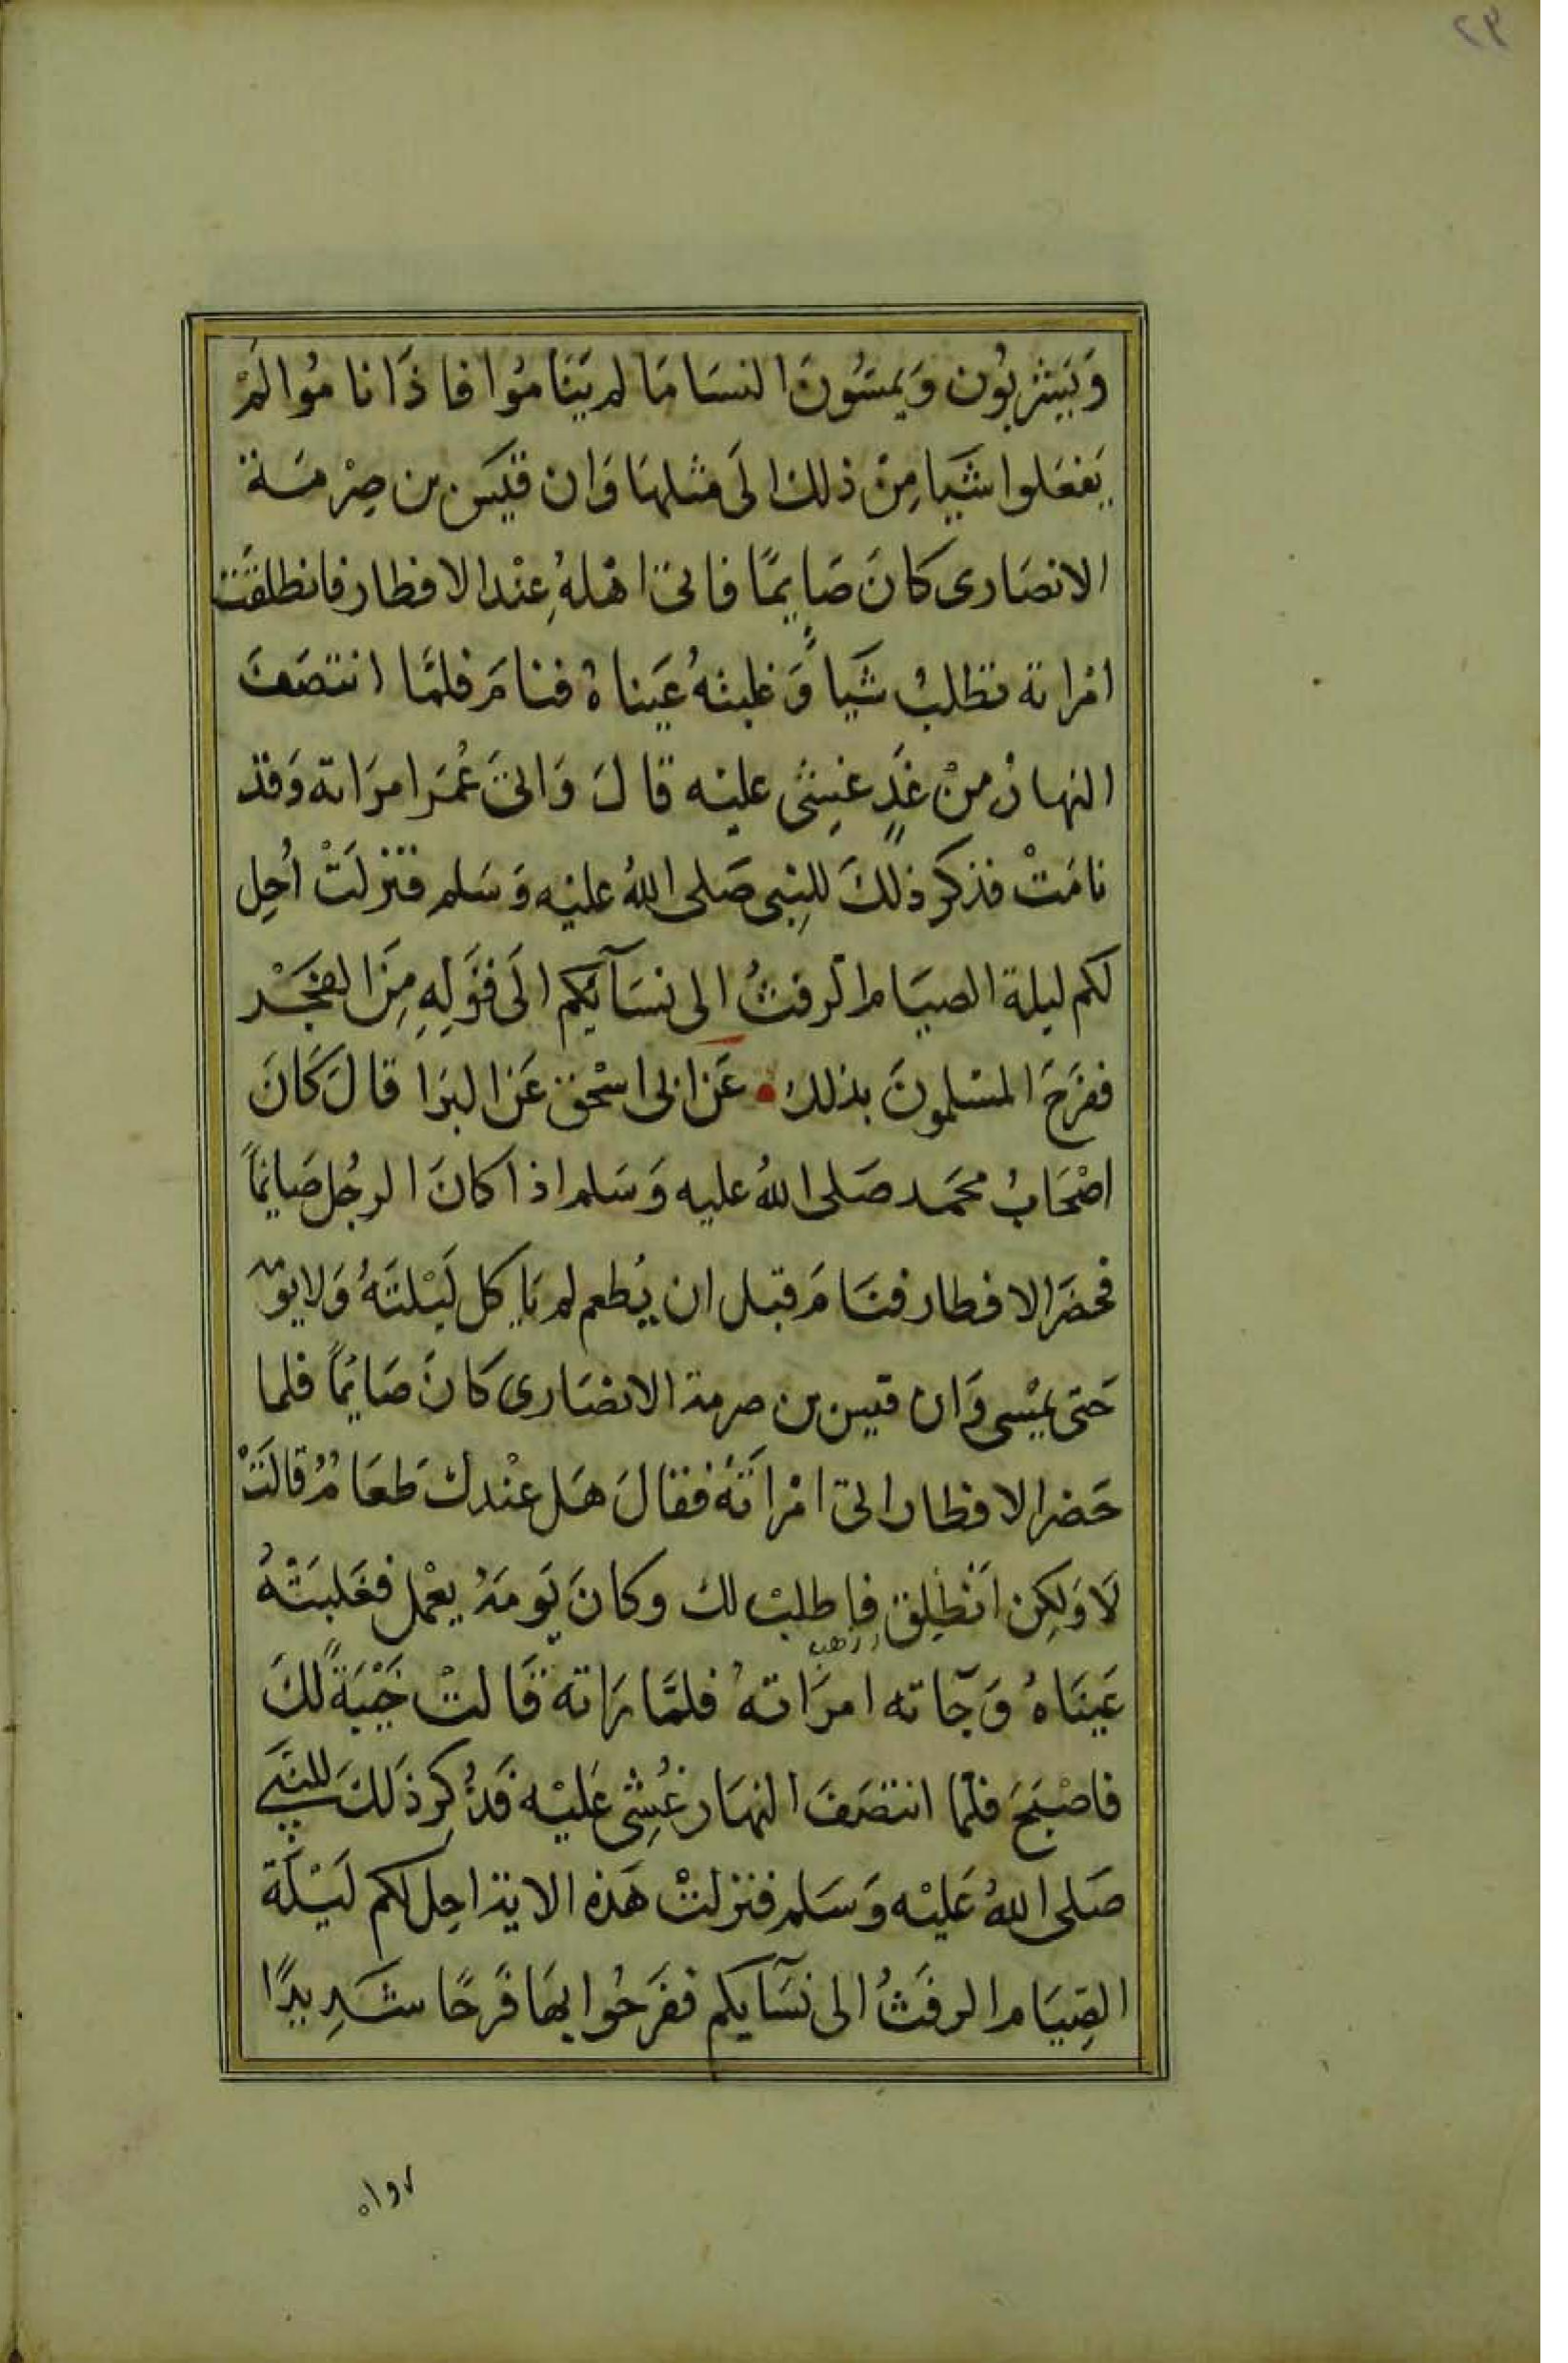 ٢٣
وَيَشْرَبُون وَيمسّونَ النسَا مَا لم يَنَامُوا فاذَا نامُوا لَمْ
يَفعَلوا شَيا مِنْ ذلك الَى مثلهَا وَان قَيسَ بن صِرْمَة
الانصَارى كانَ صَايمًا فاتى اهْلهُ عِنْد الافطار فانطلقَت
امْراته تطلبُ شَيا وَغلبتهُ عَيناهُ فنامَ فلمَّا انتصَفَ
النهارُ منْ غَدٍ غشِىَ عليْه قالَ وَاتىَ عُمَرَ امرَاته وَقد
نامَتْ فذكر ذلكَ للنِبى صَلى اللهُ عليْه وَسَلم فنزلَتْ اُحِل
لكم ليلة الصيَام الرفثُ الى نسَآئكم الَى قوَلِهِ مِنَ الفجَر
ففرَحَ المسْلمونَ بذلك • عَن ابى اسْحٰق عَن البرَا قالَ كَانَ
اصْحَابُ محمَد صَلى اللهُ عليه وَسَلم اذا كانَ الرجُل صَايمًا
فحضَر الافطار فنَامَ قبل ان يُطعم لم يَاكل لَيْلتَهُ وَلا يومه
حَتى يمْسى وَان قيس بن صرمة الانصَارى كانَ صَايمًا فلما
حَضر الافطار اتى امْراَتَهُ فقالَ هَل عنْدك طعَامُ قالَتْ
لَا وَلكِن اَنْطلِق فاطلبْ لك وكانَ يَومَهُ يعْمل فغَلبَتْهُ
عَينَاهُ وَجآته امرَاتهُ فلمَّا رَاته قَالتْ خَيْبَةً لكَ
فاصْبَحَ فلمّا انتصَفَ النهَار غُشِى عَليْه فَذُكِرَ ذَلكَ للنبَي
صَلى اللهُ عَليْه وَسَلم فنزلتْ هَذه الاية احِل لكم لَيْلَة
الصِيَام الرفَثُ الى نسَآيكم ففرَحُوا بهَا فَرحًا شَدِيدًا